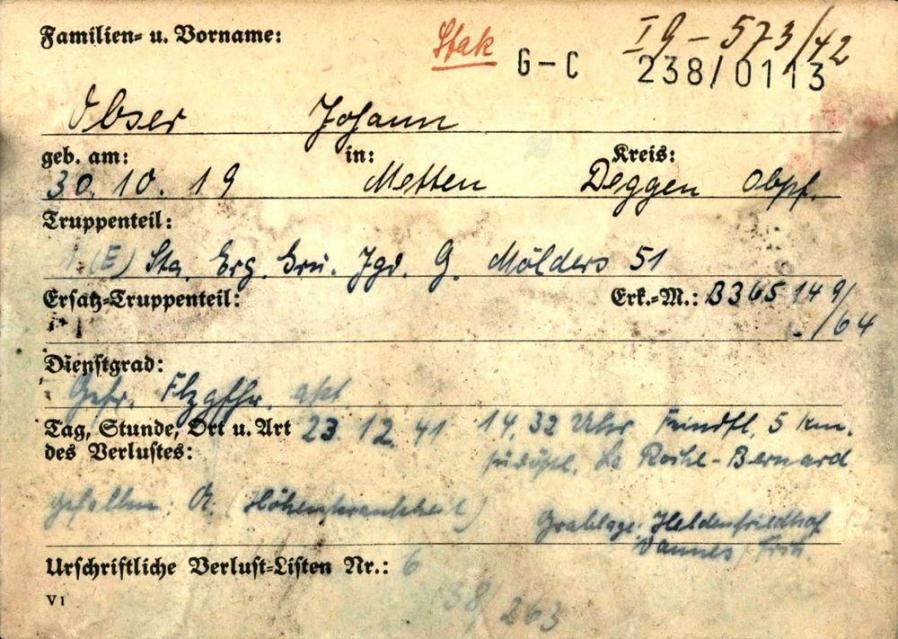 Familien- u. Vorname:
Stak G-C I 9 - 573/42
238/0113
Obser Johann
geb. am: in: Kreis:
30. 10. 19 Metten Deggen Obpf.
Truppenteil:
(E) Sta. Erg. Gru. Jgd. G. Mölders 51
Ersatz-Truppenteil: Erk.-M.: B 365 149/
/64
Dienstgrad:
Gefr. Flzgfhr.
Tag, Stunde, Ort u. Art 23. 12. 41 14,32 Uhr Feindfl. 5 km.
des Verlustes: südöstl. La Roche-Bernard
gefallen: (Höhenkrankheit) Grablage: Heldenfriedhof
Vannes
Urschriftliche Verlust-Listen Nr.: 6
58, 263
V1